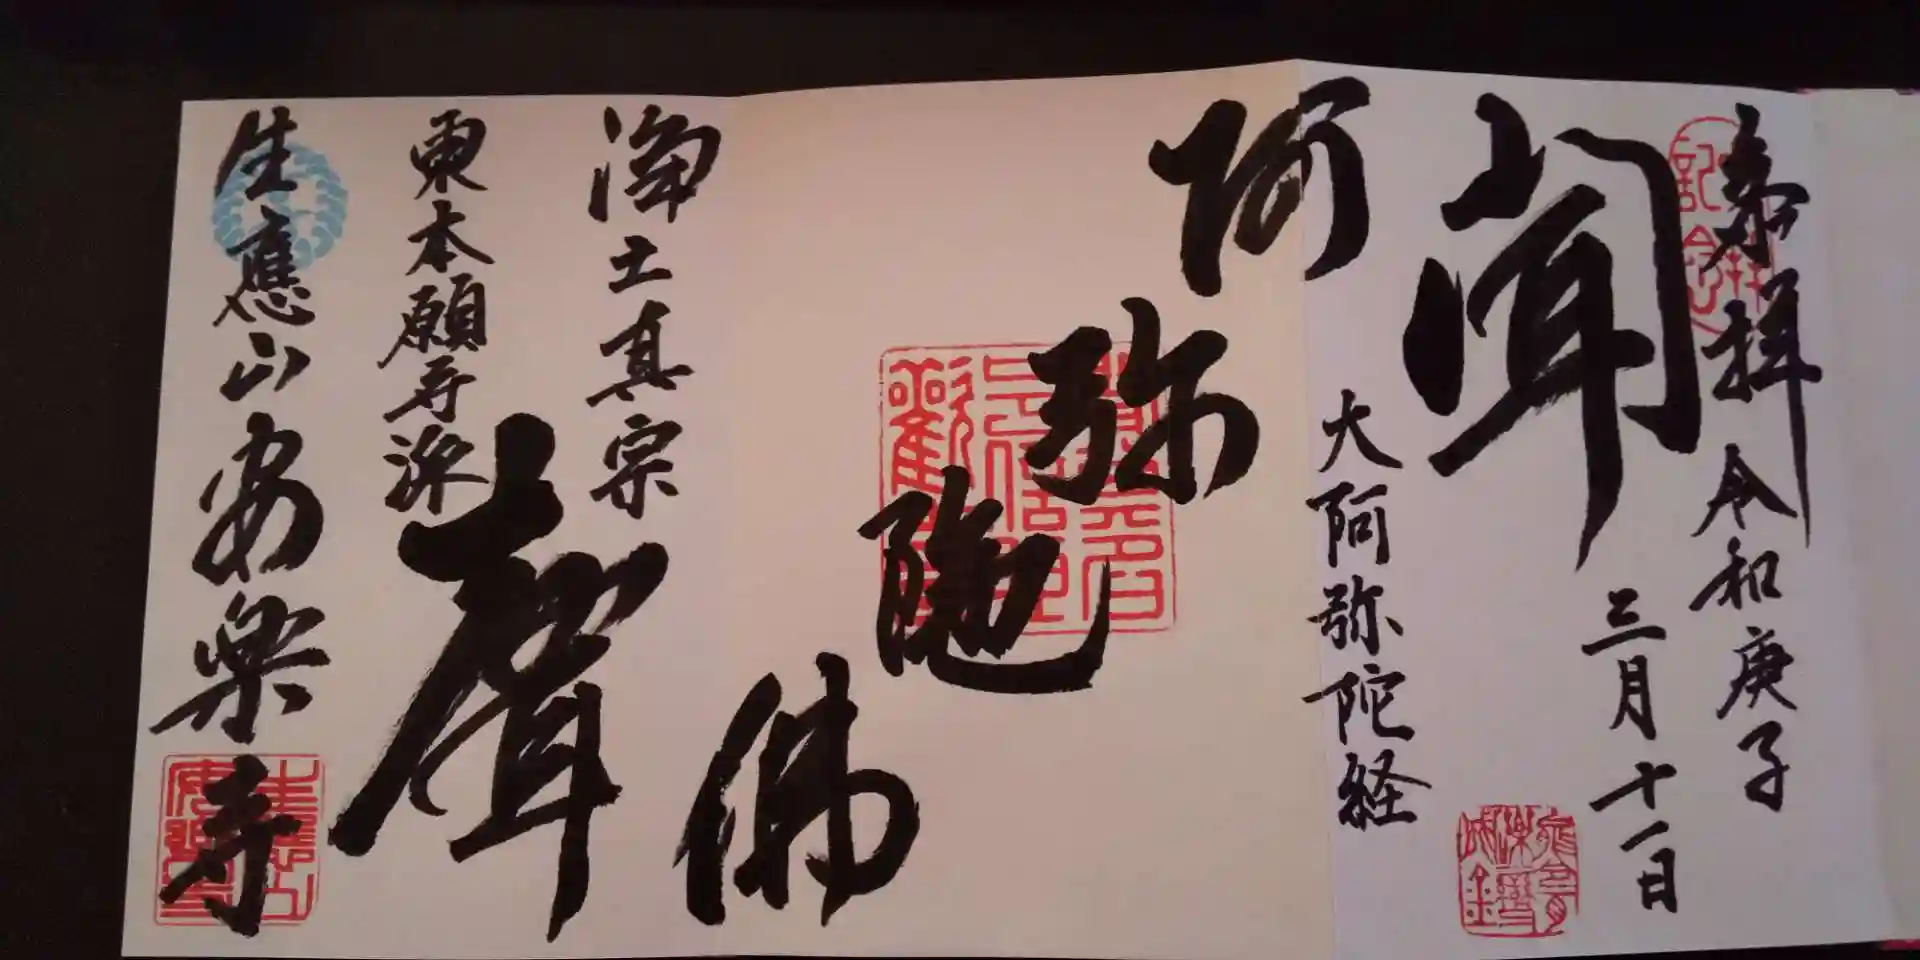 奉拝 令和庚子
三月十一日
聞
大阿弥陀経
阿弥陀佛
聲
浄土真宗
東本願寺派
生應山安樂寺